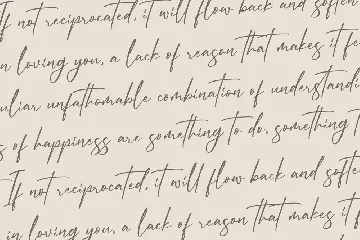 If not reciprocated, it will flow back and soften
in loving you, a lack of reason that makes it fe
uliar unfathomable combination of understandi
s of happiness are something to do, something t
If not reciprocated, it will flow back and softe
in loving you, a lack of reason that makes it f